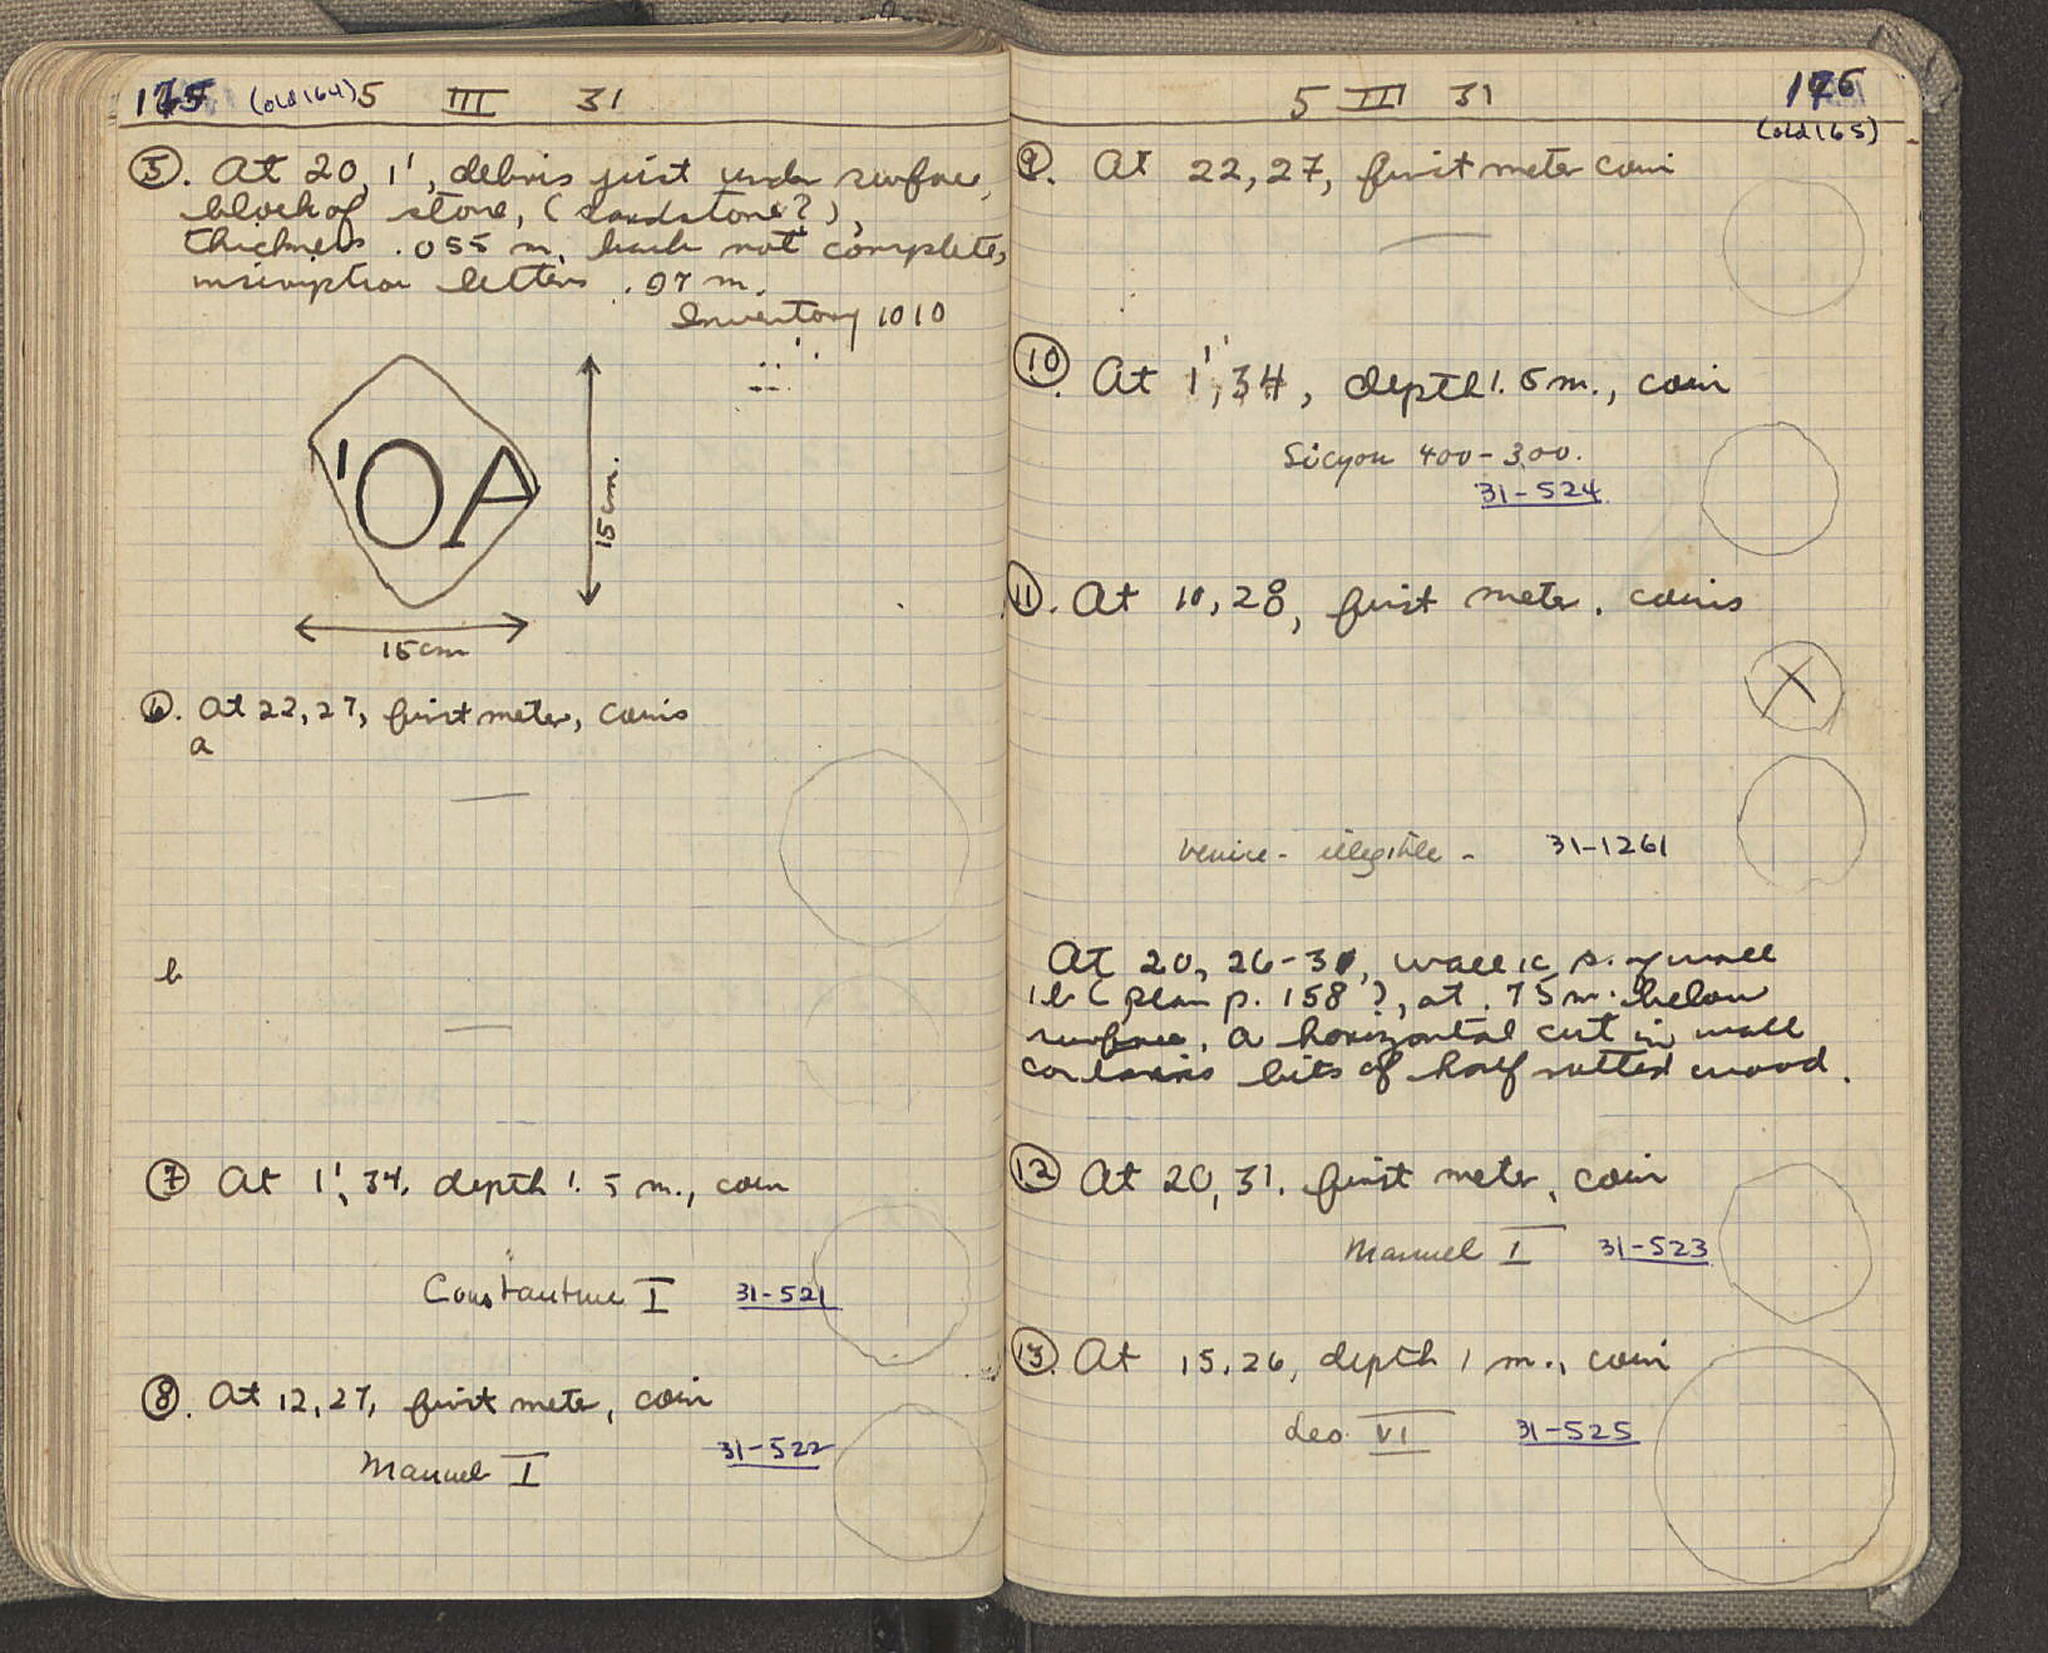 175 (old 164) 5 III 31
5. At 20, 1', debris just under surface,
block of stone, (sandstone?),
thickness .055 m. back not complete,
inscription letters .07 m.
Inventory 1010
'OA
15 cm.
15 cm
6. At 22, 27, first meter, coins
a
b
7 At 1', 34, depth 1.5 m., coin
Constantine I 31-521
8. At 12, 27, first meter, coin
31-522
Manuel I
5 III 31 176
(old 165)
9. At 22, 27, first meter coin
10. At 1', 34, depth 1.5 m., coin
Sicyon 400-300.
31-524
11. At 10, 28, first meter, coins
Venice - illegible - 31-1261
At 20, 26-31, wall 1c, s. of wall
1b (plan p. 158?), at .75 m. below
surface, a horizontal cut in wall
contains bits of half rotted wood.
12 At 20, 31, first meter, coin
Manuel I 31-523
13. At 15, 26, depth 1 m., coin
Leo VI 31-525